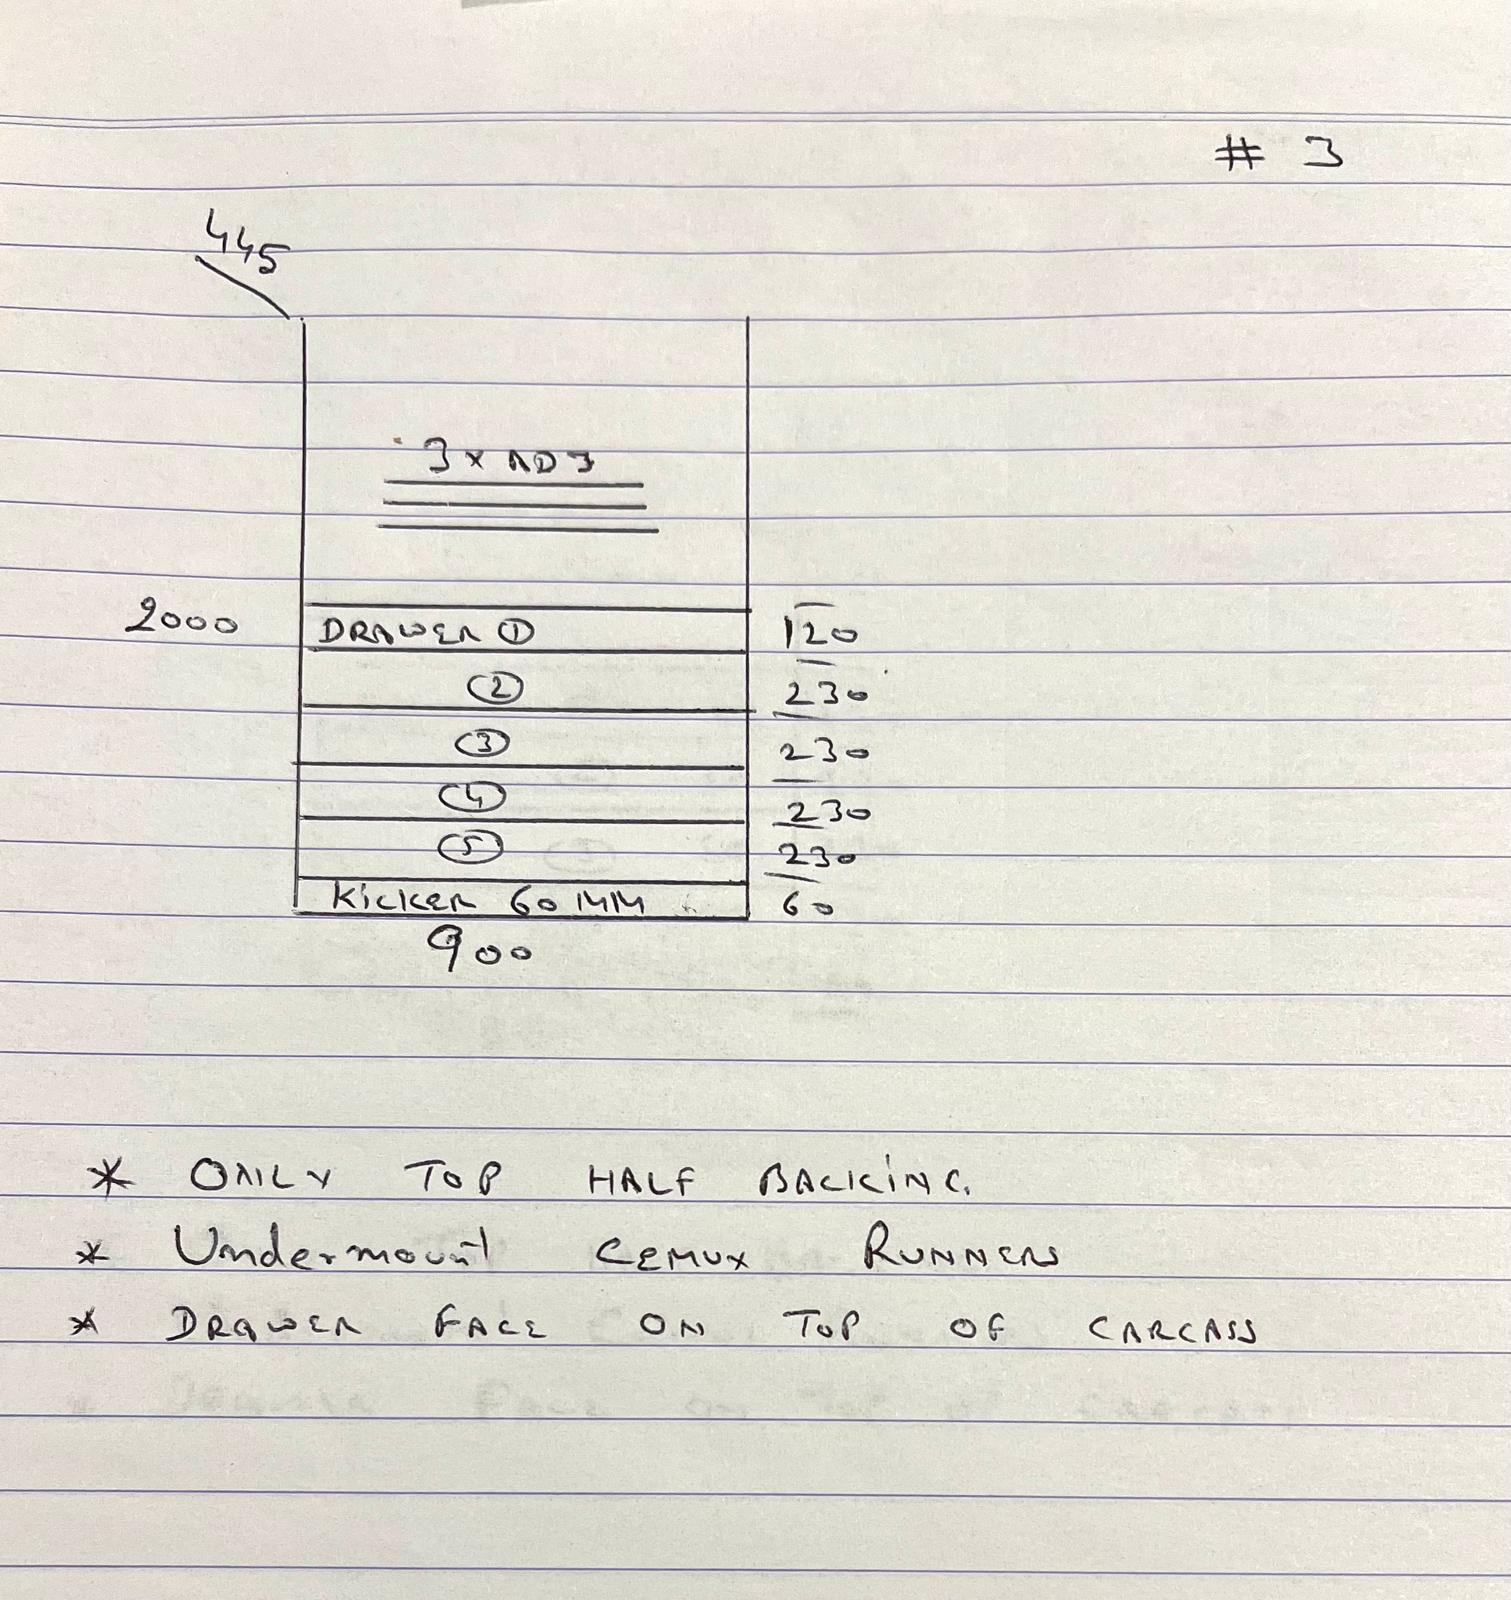 # 3
445
3 x ADJ
2000
DRAWER ① 120
② 230
③ 230
④ 230
⑤ 230
Kicker 60 MM 60
900
* ONLY TOP HALF BACKING
* Undermount CEMUX RUNNERS
* DRAWER FACE ON TOP OF CARCASS